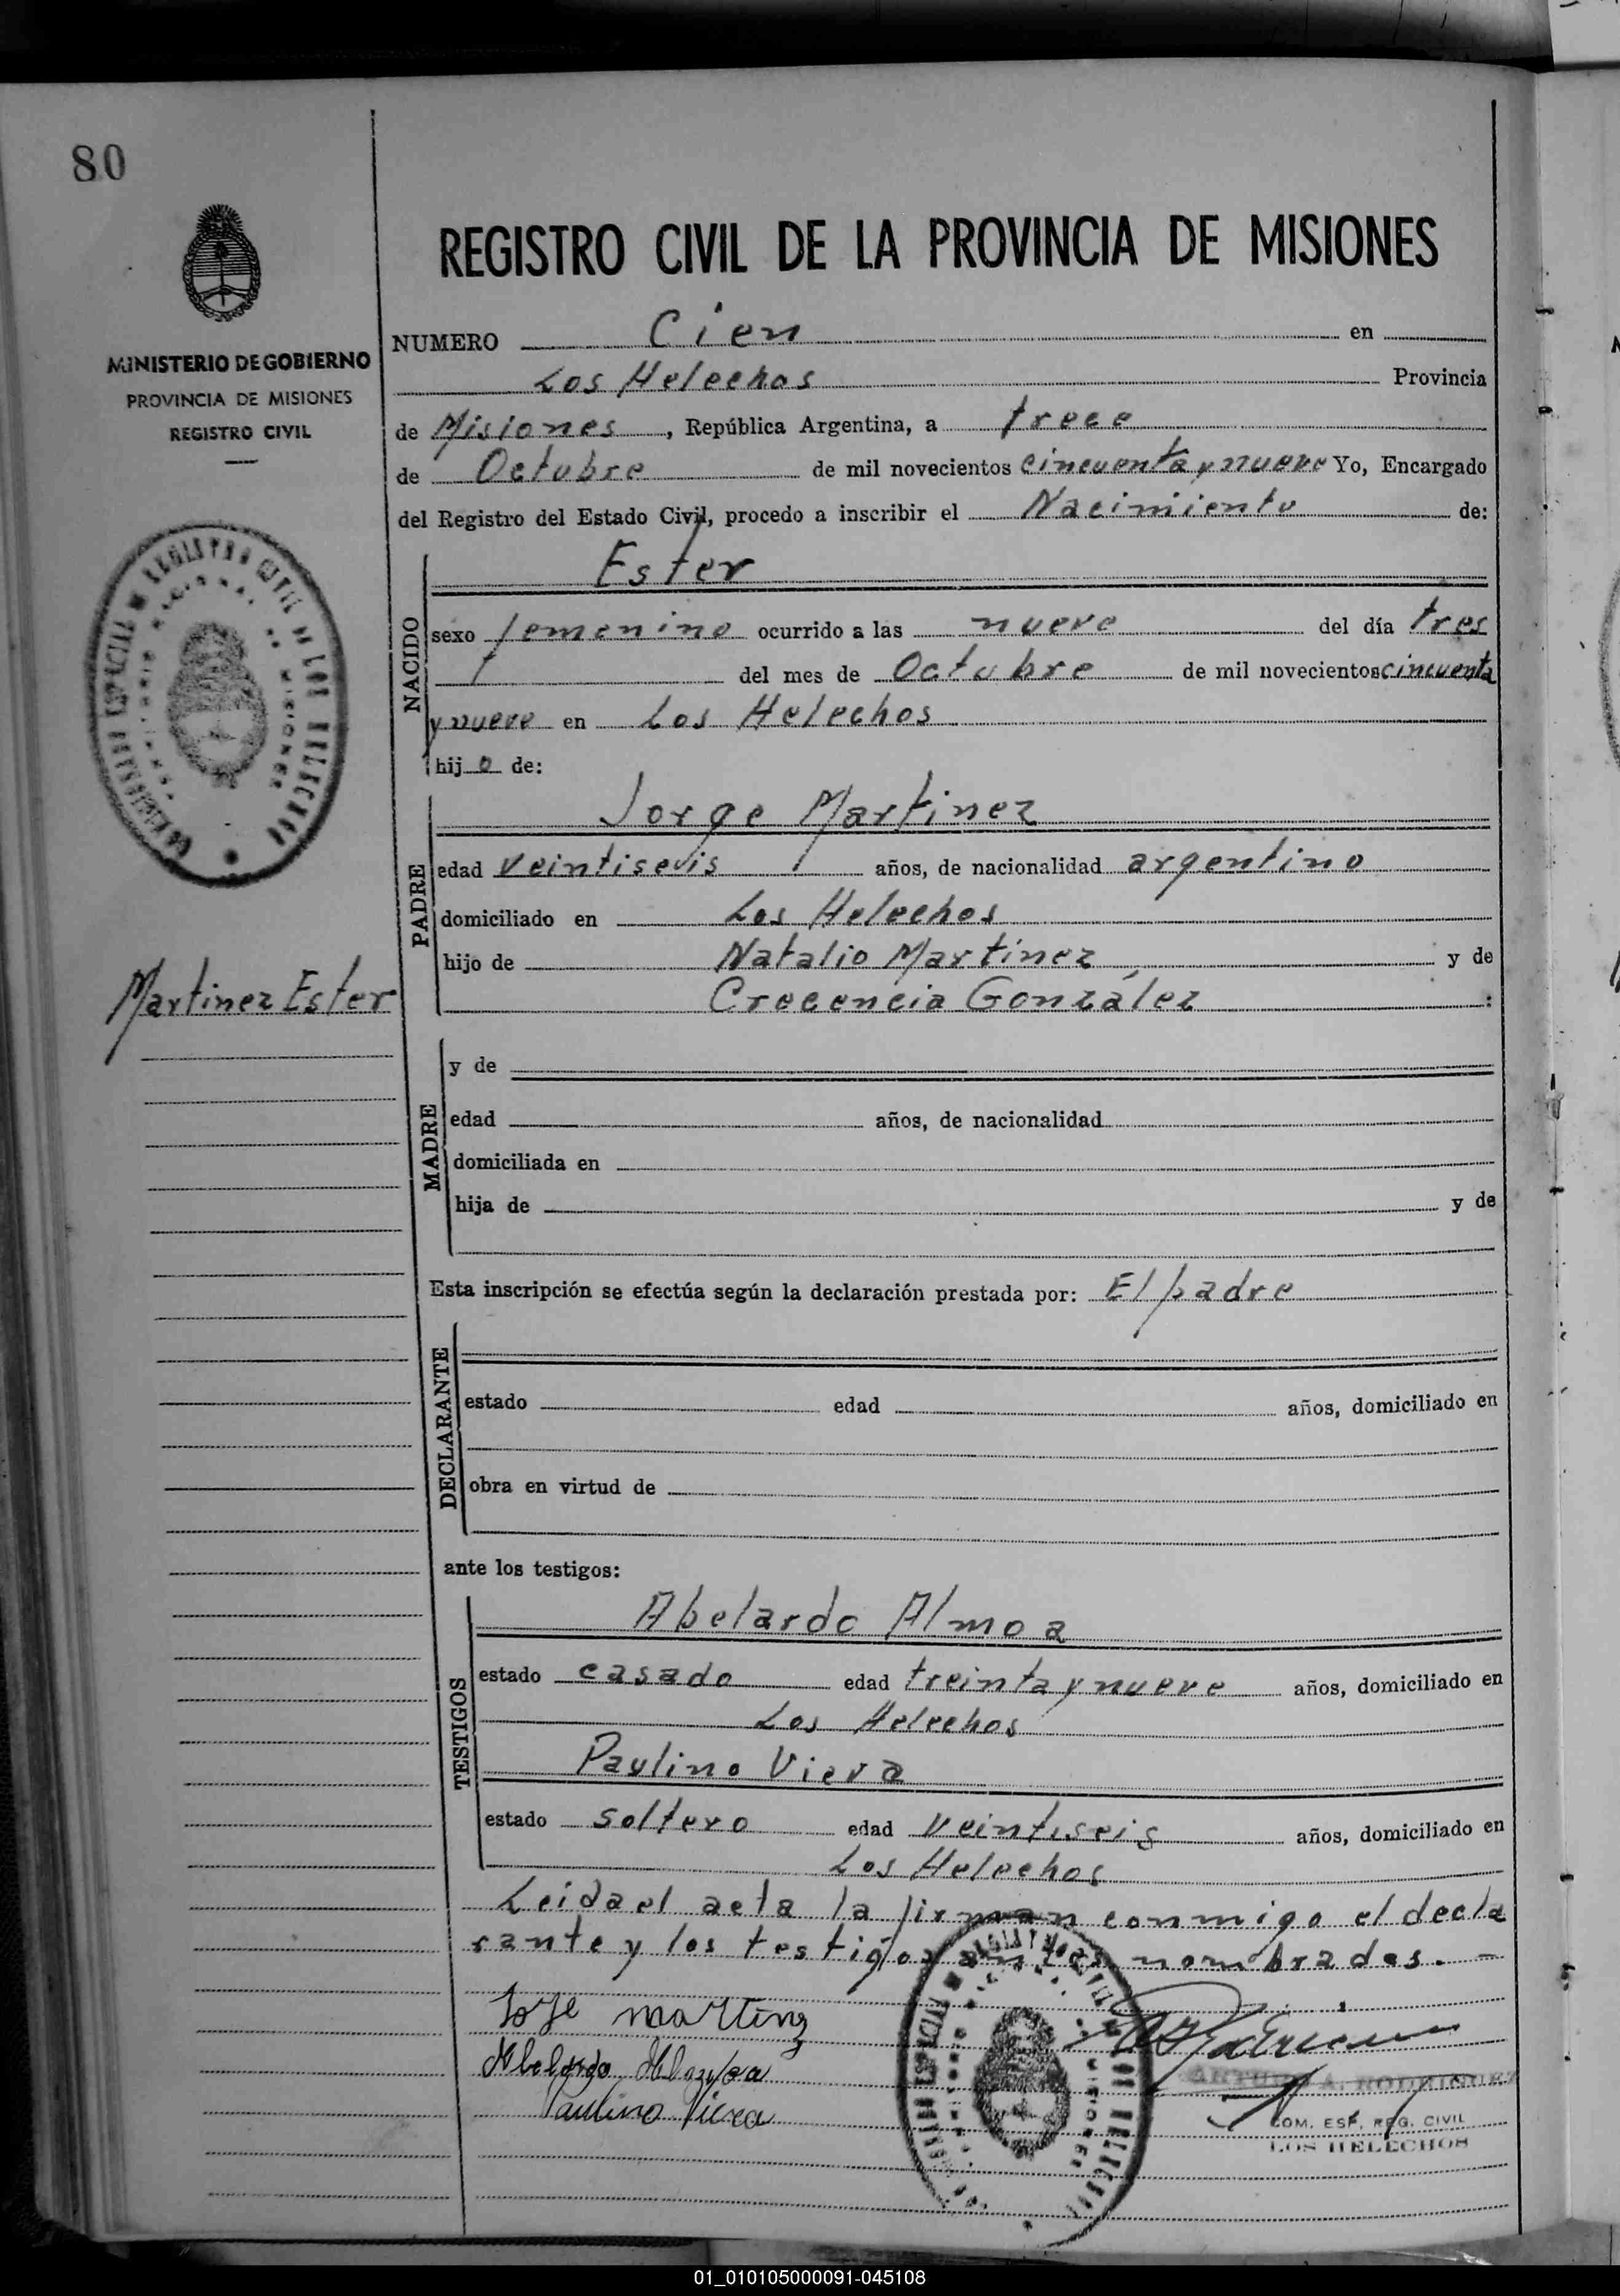 80
MINISTERIO DE GOBIERNO
PROVINCIA DE MISIONES
REGISTRO CIVIL
REGISTRO CIVIL DE LA PROVINCIA DE MISIONES
NUMERO Cien en
Los Helechos Provincia
de Misiones, República Argentina, a trece
de Octubre de mil novecientos cincuenta y nueve Yo, Encargado
del Registro del Estado Civil, procedo a inscribir el Nacimiento de:
NACIDO
Ester
sexo femenino ocurrido a las nueve del día tres
del mes de Octubre de mil novecientos cincuenta
y nueve en Los Helechos
hij o de:
PADRE
Jorge Martinez
edad veintiseis años, de nacionalidad argentino
domiciliado en Los Helechos
hijo de Natalio Martínez y de
Crecencia González :
Martinez Ester
MADRE
y de
edad años, de nacionalidad
domiciliada en
hija de y de
Esta inscripción se efectúa según la declaración prestada por: El padre
DECLARANTE
estado edad años, domiciliado en
obra en virtud de
ante los testigos:
TESTIGOS
Abelardo Almoa
estado casado edad treinta y nueve años, domiciliado en
Los Helechos
Paulino Viera
estado soltero edad veintiseis años, domiciliado en
Los Helechos
Leida el acta la firman conmigo el decla
rante y los testigos antes nombrados. -
Paulino Viera
ARTURO A. RODRIGUEZ
COM. ESP. REG. CIVIL
LOS HELECHOS
01_010105000091-045108